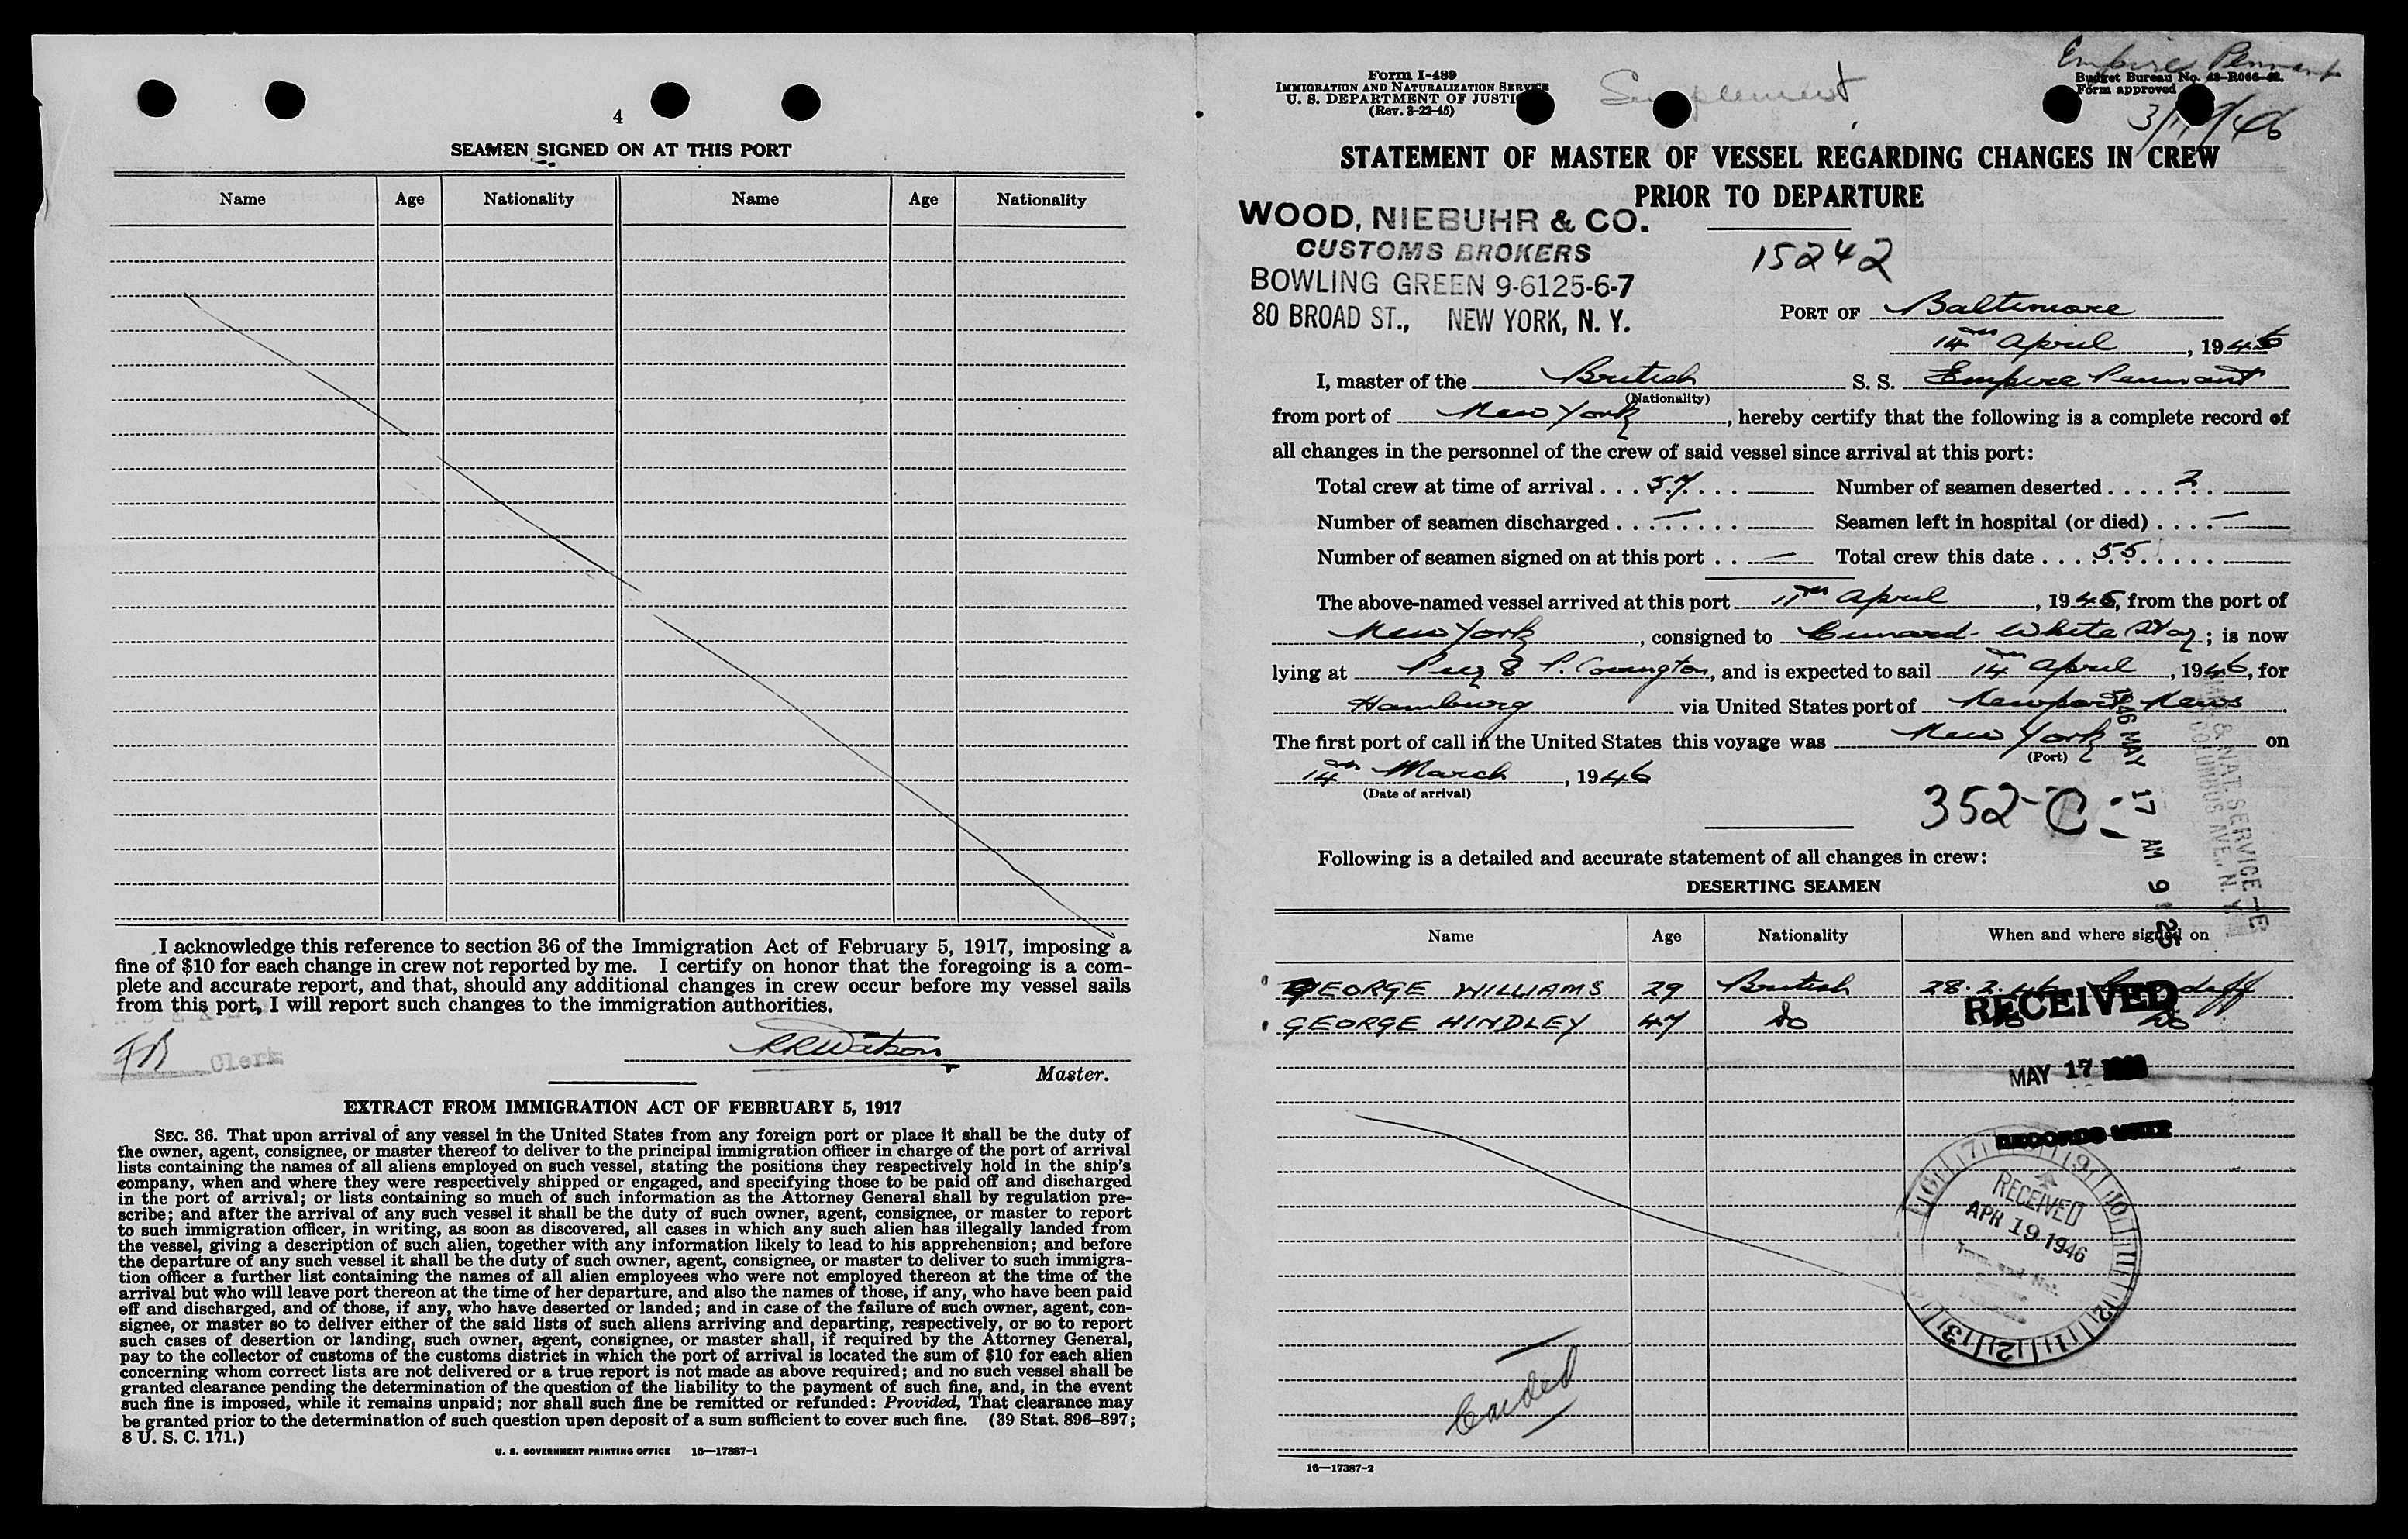 4
SEAMEN SIGNED ON AT THIS PORT
Name Age Nationality Name Age Nationality
I acknowledge this reference to section 36 of the Immigration Act of February 5, 1917, imposing a
fine of $10 for each change in crew not reported by me. I certify on honor that the foregoing is a com-
plete and accurate report, and that, should any additional changes in crew occur before my vessel sails
from this port, I will report such changes to the immigration authorities.
Clerk
RRWatson
Master.
EXTRACT FROM IMMIGRATION ACT OF FEBRUARY 5, 1917
SEC. 36. That upon arrival of any vessel in the United States from any foreign port or place it shall be the duty of
the owner, agent, consignee, or master thereof to deliver to the principal immigration officer in charge of the port of arrival
lists containing the names of all aliens employed on such vessel, stating the positions they respectively hold in the ship's
company, when and where they were respectively shipped or engaged, and specifying those to be paid off and discharged
in the port of arrival; or lists containing so much of such information as the Attorney General shall by regulation pre-
scribe; and after the arrival of any such vessel it shall be the duty of such owner, agent, consignee, or master to report
to such immigration officer, in writing, as soon as discovered, all cases in which any such alien has illegally landed from
the vessel, giving a description of such alien, together with any information likely to lead to his apprehension; and before
the departure of any such vessel it shall be the duty of such owner, agent, consignee, or master to deliver to such immigra-
tion officer a further list containing the names of all alien employees who were not employed thereon at the time of the
arrival but who will leave port thereon at the time of her departure, and also the names of those, if any, who have been paid
off and discharged, and of those, if any, who have deserted or landed; and in case of the failure of such owner, agent, con-
signee, or master so to deliver either of the said lists of such aliens arriving and departing, respectively, or so to report
such cases of desertion or landing, such owner, agent, consignee, or master shall, if required by the Attorney General,
pay to the collector of customs of the customs district in which the port of arrival is located the sum of $10 for each alien
concerning whom correct lists are not delivered or a true report is not made as above required; and no such vessel shall be
granted clearance pending the determination of the question of the liability to the payment of such fine, and, in the event
such fine is imposed, while it remains unpaid; nor shall such fine be remitted or refunded: Provided, That clearance may
be granted prior to the determination of such question upon deposit of a sum sufficient to cover such fine. (39 Stat. 896–897;
8 U. S. C. 171.)
U. S. GOVERNMENT PRINTING OFFICE 16—17387-1
Empire Pennant
Form I-489
IMMIGRATION AND NATURALIZATION SERVICE
U. S. DEPARTMENT OF JUSTICE
(Rev. 3-22-45)
Supplement
Budget Bureau No. 43-R066-42.
Form approved
3/11/46
STATEMENT OF MASTER OF VESSEL REGARDING CHANGES IN CREW
PRIOR TO DEPARTURE
WOOD, NIEBUHR & CO.
CUSTOMS BROKERS
BOWLING GREEN 9-6125-6-7
80 BROAD ST., NEW YORK, N. Y.
15242
PORT OF Baltimore
14th April, 1946
I, master of the British S. S. Empire Pennant
(Nationality)
from port of New York, hereby certify that the following is a complete record of
all changes in the personnel of the crew of said vessel since arrival at this port:
Total crew at time of arrival . . . 57 . . . . Number of seamen deserted . . . . 2 . .
Number of seamen discharged . . — . . . . Seamen left in hospital (or died) . . . . —
Number of seamen signed on at this port . . — Total crew this date . . . 55 . . . . .
The above-named vessel arrived at this port 11th April, 1946, from the port of
New York, consigned to Cunard-White Star; is now
lying at Pier 8 P. Covington, and is expected to sail 14th April, 1946, for
Hamburg via United States port of Newport News
The first port of call in the United States this voyage was New York on
(Port)
14th March, 1946
(Date of arrival)
352-C
'46 MAY 17 AM 9 25
& NAT. SERVICE
COLUMBUS AVE., N. Y.
Following is a detailed and accurate statement of all changes in crew:
DESERTING SEAMEN
Name Age Nationality When and where signed on
GEORGE WILLIAMS 29 British 28.2.46
GEORGE HINDLEY 47 do do do
RECEIVED
MAY 17
RECORDS UNIT
RECEIVED
APR 19 1946
Imm. and Nat.
Carded
16—17387-2